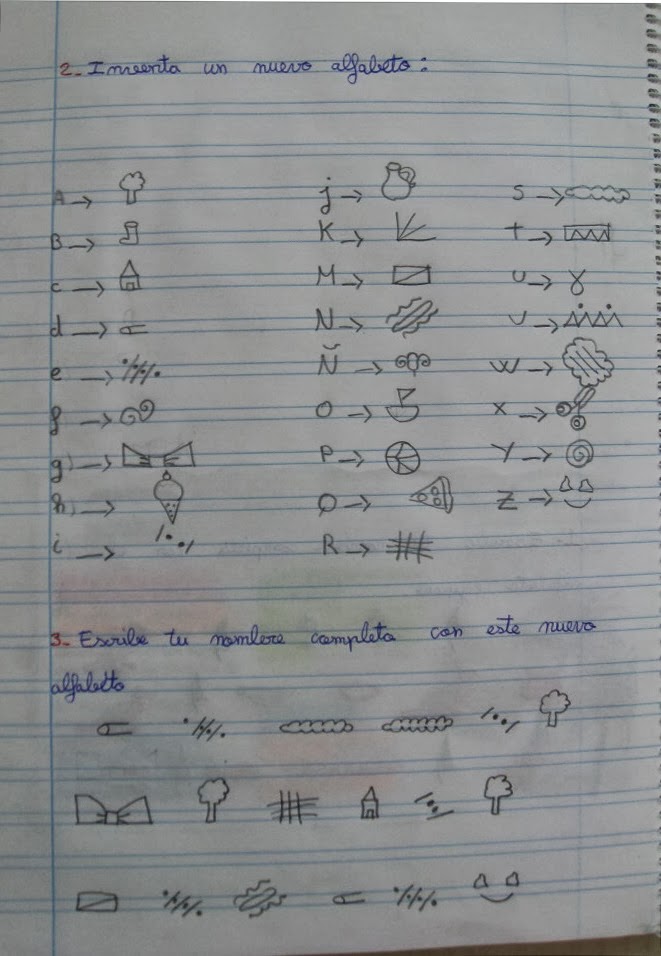 2- Inventa un nuevo alfabeto:
A → j → S →
B → K → t →
c → M → u →
d → N → v →
e → Ñ → w →
f → O → x →
g) → P → Y →
h) → Q → Z →
i → R →
3- Escribe tu nombre completa con este nuevo
alfabetto